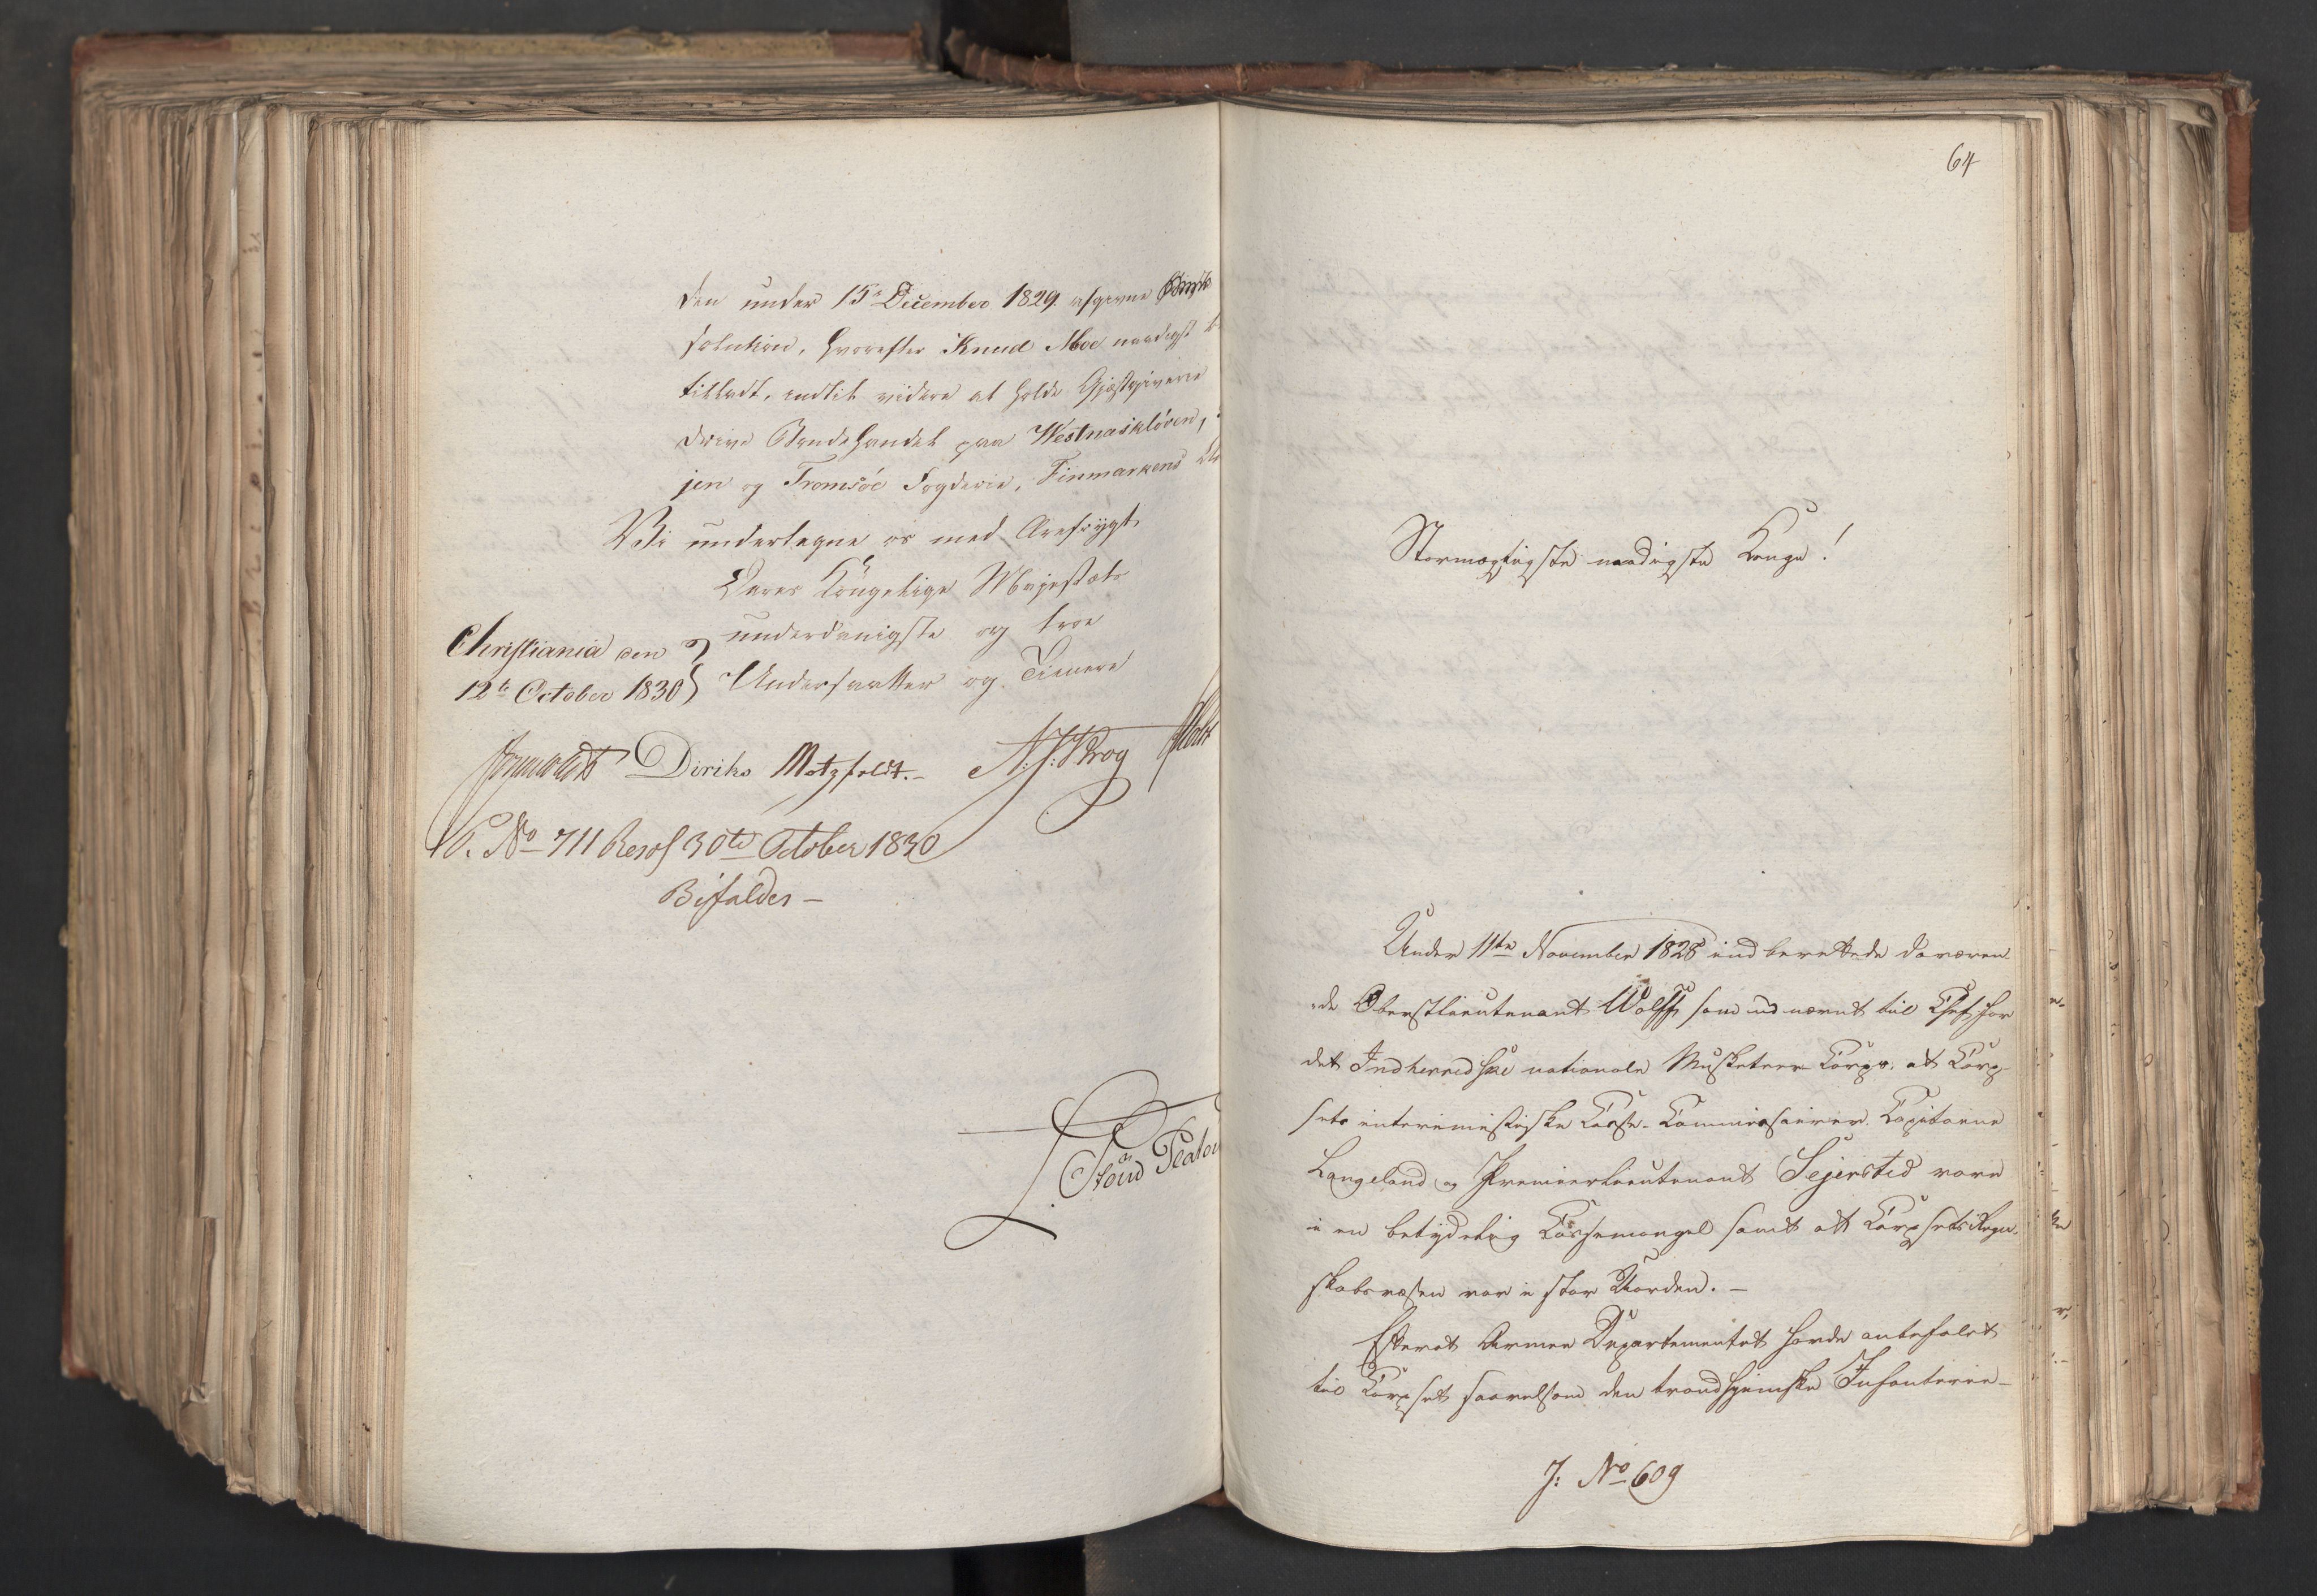 den under 15de December 1829 afgivne
solution, hvorefter Knud Moe naadigst
tilladt, indtil videre at holde Gjæstgiverie
drive Bondehandel paa Westnæskløven,
jen og Tromsöe Fogderie, Finmarkens
Vi undertegne os med Ærefrygt
Deres Kongelige Majestæts
underdanigste og troe
Undersaatter og Tienere
Christiania den
12te October 1830
Diriks Motzfeldt.- N: J: Krog Holst
No 711 Resol 30te October 1830
Bifaldes -
64
Stormægtigste naadigste Konge!
Under 11te November 1828 indberettede daværen
de Oberstlieutenant Wolff som udnævnt til Chef for
det Indherredske nationale Musketeer Corps, at Corp
sets interimistiske Casse-Commissairer Capitaine
Langeland og Premierlieutenant Sejersted vare
i en betydelig Cassemangel samt at Corpsets Regn
skabsvæsen var i stor Uorden. -
Efterat Armee Departementet havde anbefalet
til Corpset saavelsom den trondhjemske Infanterie-
J: No 609